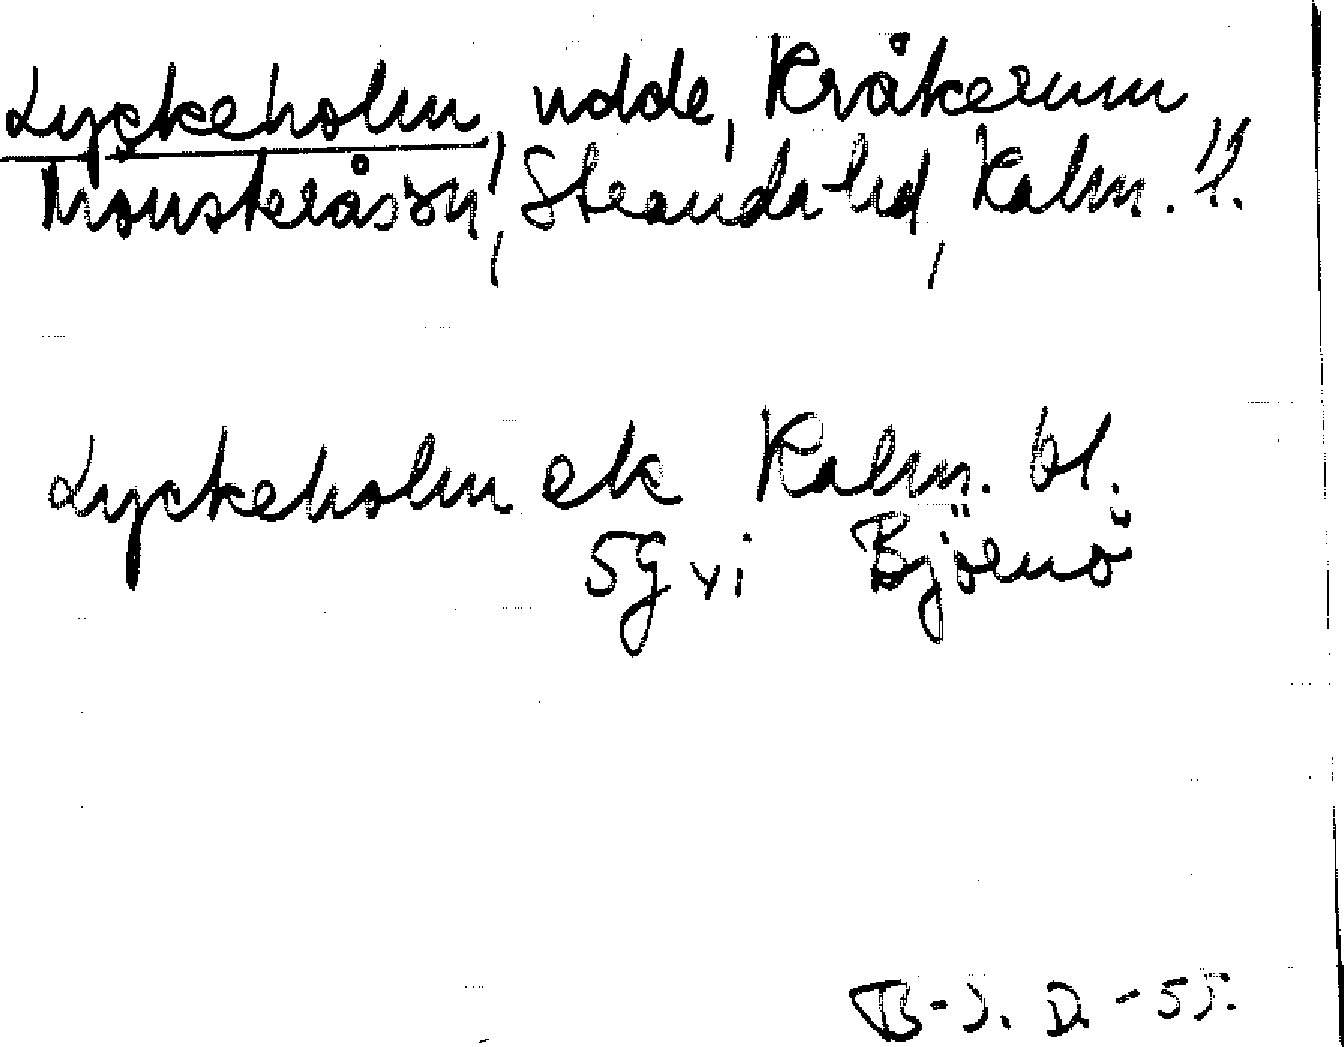 Lyckeholm, udde, Kråkerum
Mönsterås sn, Stranda hd, Kalm. l.
Lyckeholm ek Kalm. bl.
5g vi Björnö
B-J. D. -55.